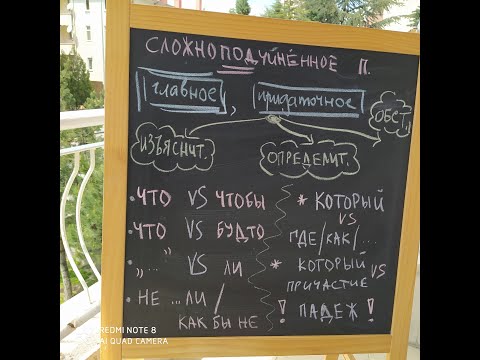 СЛОЖНОПОДЧИНЁННОЕ П.
главное, придаточное
ОБСТ.
ИЗЪЯСНИТ.
ОПРЕДЕЛИТ.
• ЧТО VS ЧТОБЫ
• ЧТО VS БУДТО
• „ ... " VS ЛИ
• НЕ ... ЛИ /
КАК БЫ НЕ
* КОТОРЫЙ
VS
ГДЕ/КАК/...
* КОТОРЫЙ
VS
ПРИЧАСТИЕ
! ПАДЕЖ !
REDMI NOTE 8
AI QUAD CAMERA